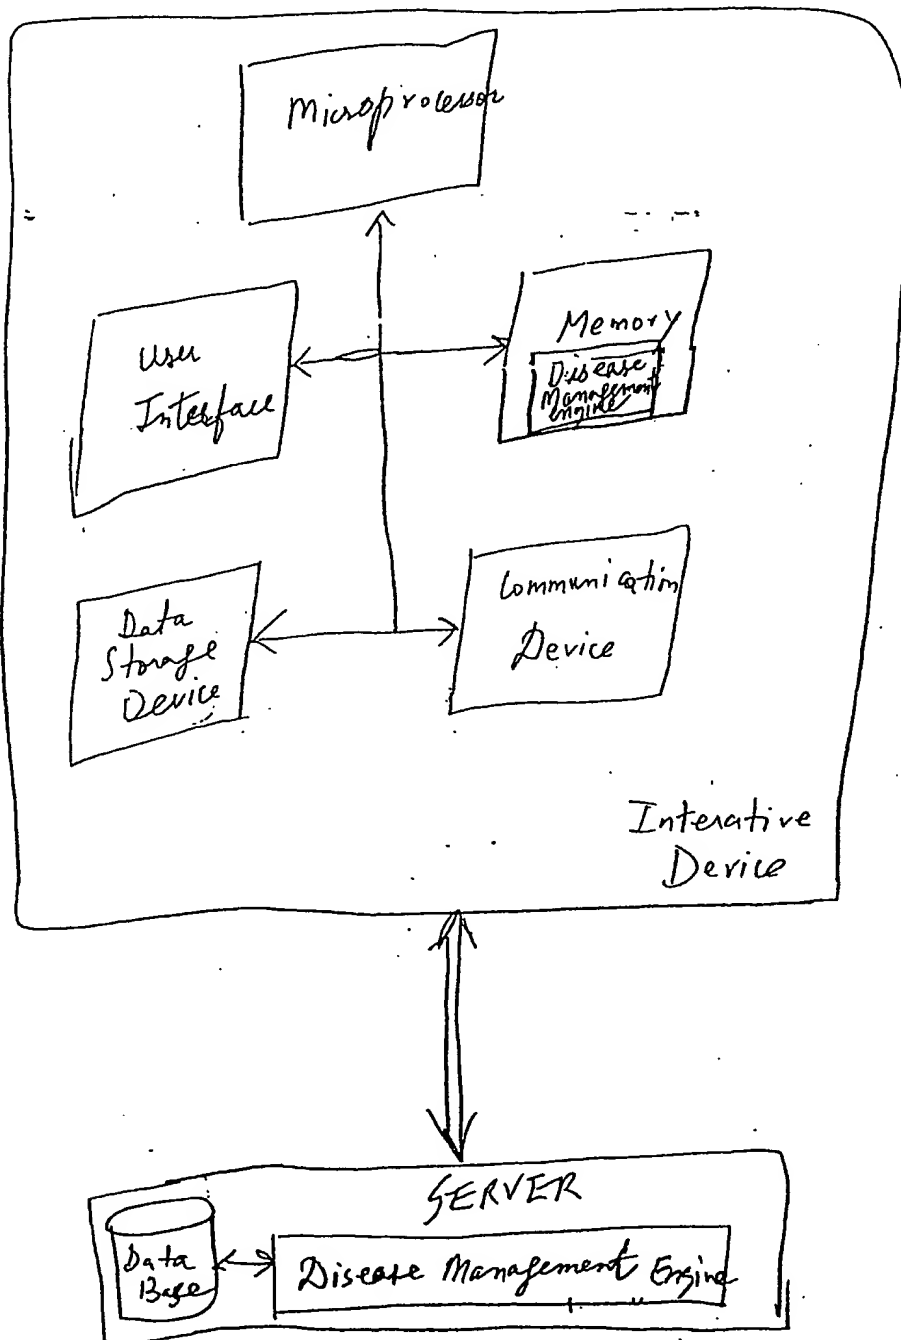 Microprocessor
User
Interface
Memory
Disease
Management
engine
Data
Storage
Device
Communication
Device
Interative
Device
SERVER
Data
Base
Disease Management Engine